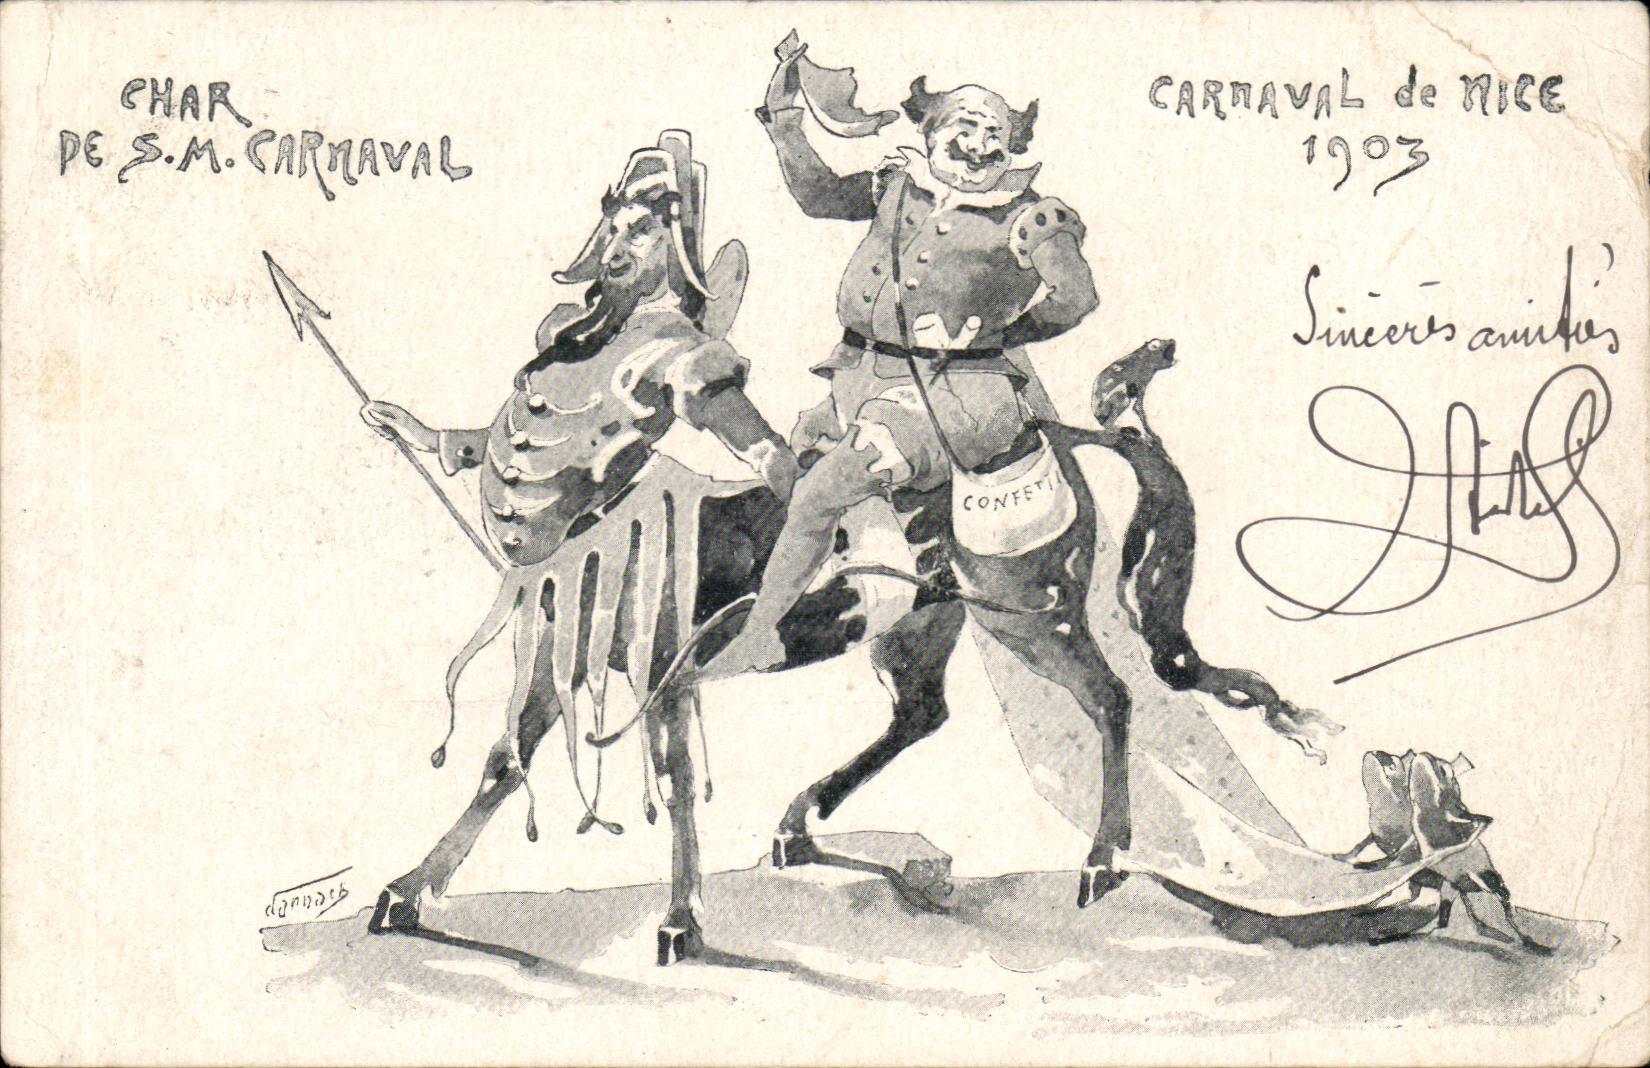 CHAR
DE S.M. CARNAVAL
CARNAVAL de NICE
1903
Sincères amitiés
CONFETTI